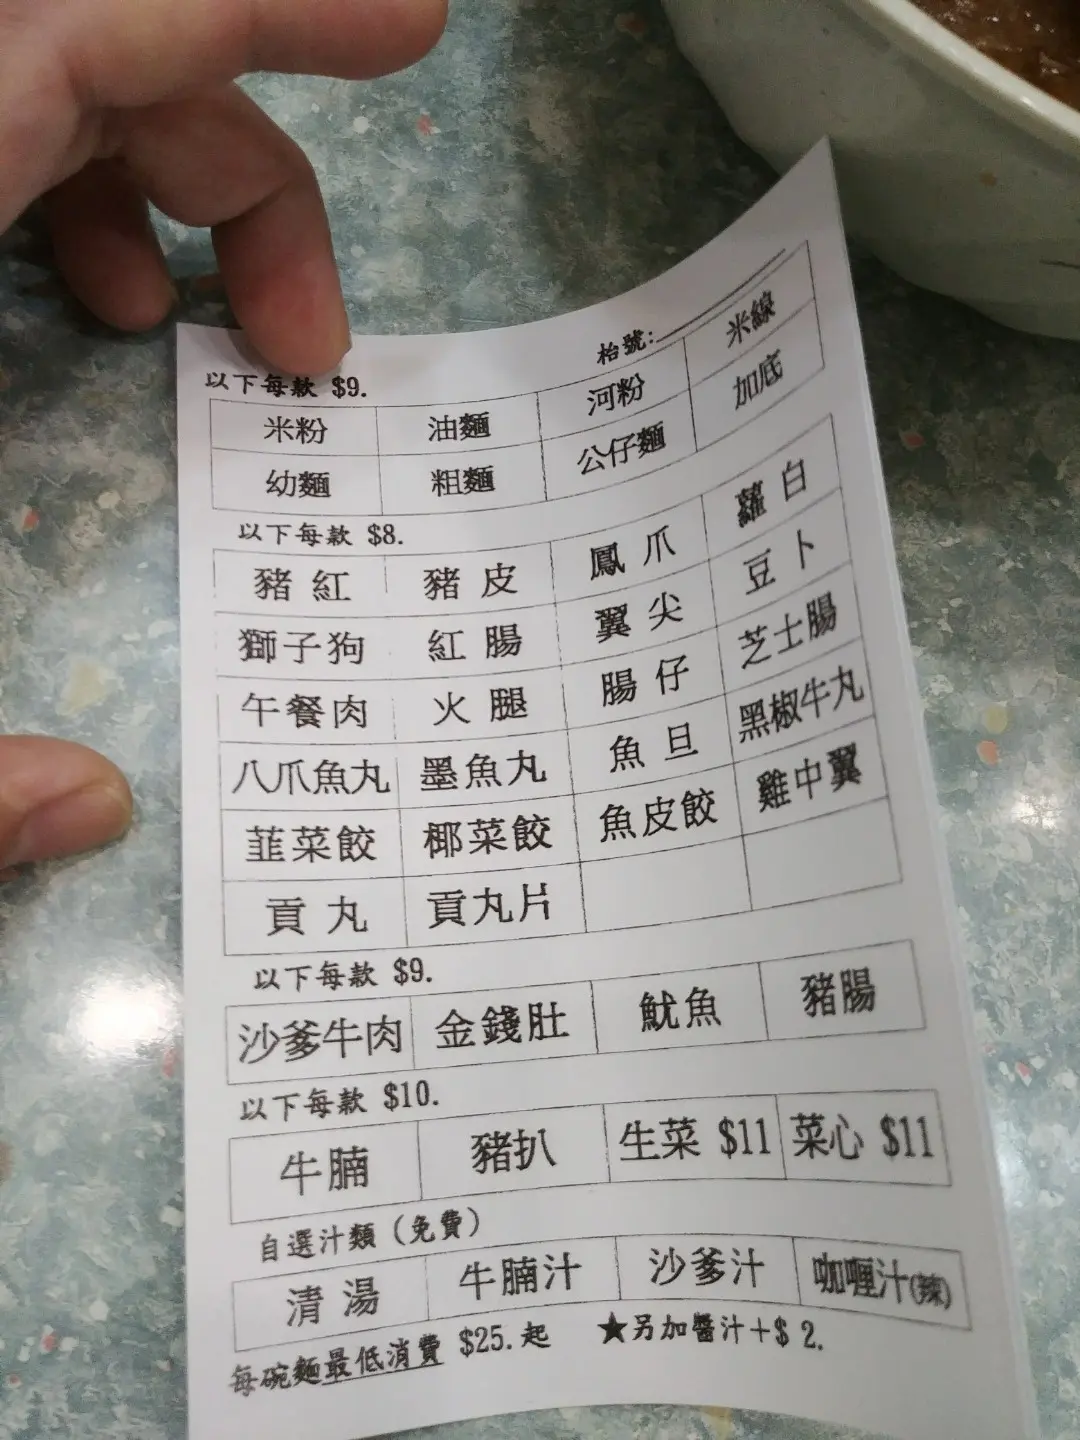 枱號:
以下每款 $9.
米粉 油麵 河粉 米線
幼麵 粗麵 公仔麵 加底
以下每款 $8.
豬紅 豬皮 鳳爪 蘿白
獅子狗 紅腸 翼尖 豆卜
午餐肉 火腿 腸仔 芝士腸
八爪魚丸 墨魚丸 魚旦 黑椒牛丸
韮菜餃 椰菜餃 魚皮餃 雞中翼
貢丸 貢丸片
以下每款 $9.
沙爹牛肉 金錢肚 魷魚 豬腸
以下每款 $10.
牛腩 豬扒 生菜 $11 菜心 $11
自選汁類(免費)
清湯 牛腩汁 沙爹汁 咖喱汁(辣)
每碗麵最低消費 $25.起 ★另加醬汁+$ 2.